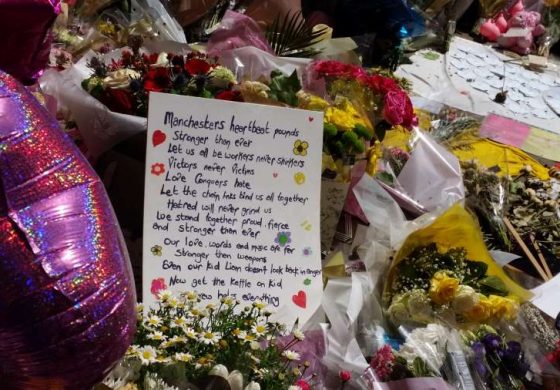 Manchesters heartbeat pounds
Stronger than ever
Let us all be workers never shirkers
Victors never victims
Love Conquers hate
Let the chain links bind us all together
Hatred will never grind us
We stand together proud fierce
And stronger than ever
Our love, words and music are far
Stronger than weapons
Even our kid Liam doesn't look back in anger
Now get the Kettle on kid
everything